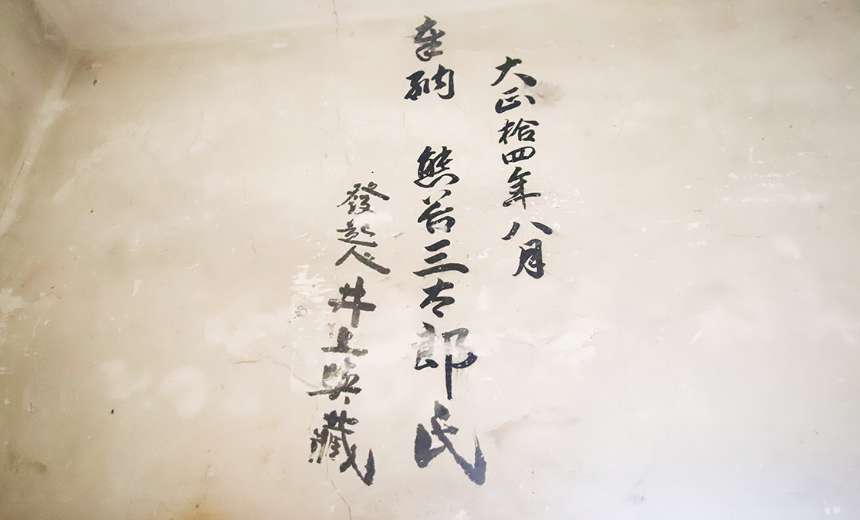 大正拾四年八月
奉納 熊谷三太郎氏
發起人 井上與藏